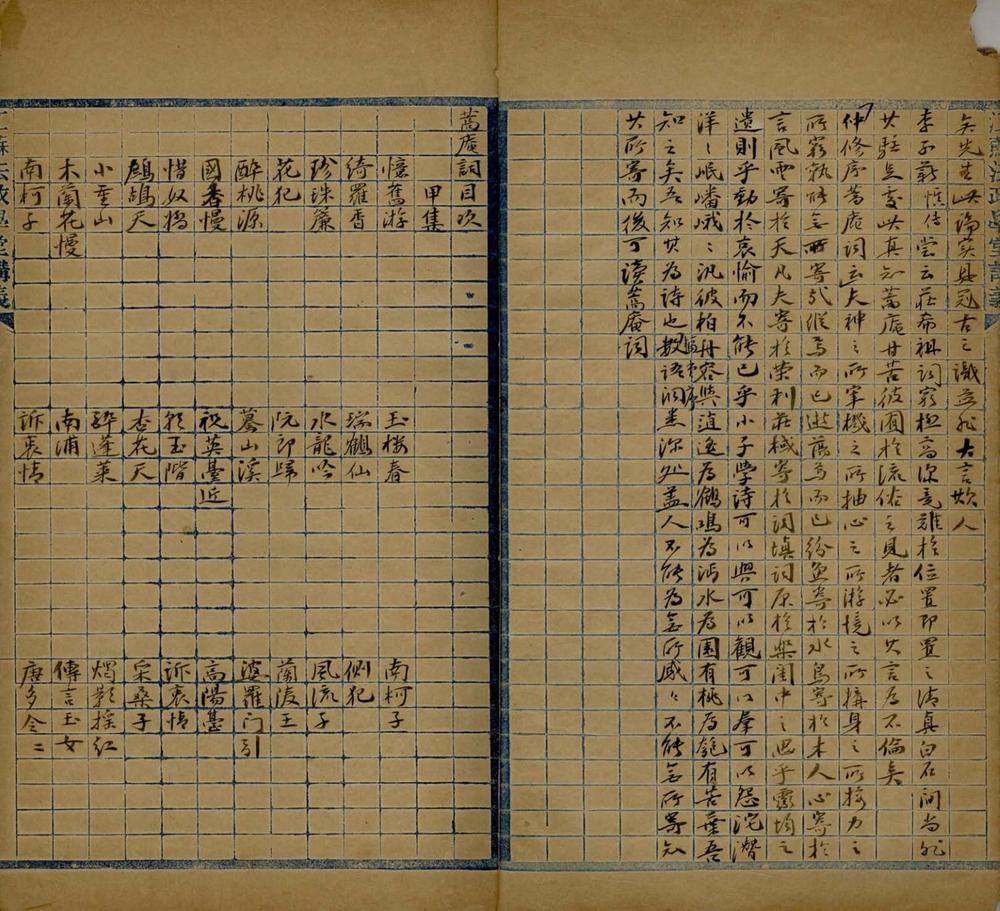 矣先生此論莫與冠古之識豈非大言欺人
李子薪惟傳嘗云莊希祖詞窮極高深竟難於位置即置之清真白石間尚非
其駐足處此真知蒿庵甘苦彼囿於流俗之見者必以其言為不倫矣
仲修序蒿庵詞云夫神之所宰機之所抽心之所游境之所搆身之所接力之
所窮孰能無所寄哉縱焉而已逝萬焉而已紛魚寄於水鳥寄於木人心寄於
言風雲寄於天凡夫寄於榮利莊棫寄於詞填詞原於樂閨中之思乎靈均之
遺則乎動於哀愉而不能已乎小子學詩可以興可以觀可以羣可以怨沱潛
洋洋岷嶓峨峨汎彼柏舟容與逍遙為鶴鳴為沔水為園有桃為匏有苦葉吾
知之矣吾知其為詩也數語洞悉深処蓋人不能為無所感感不能無所寄知
其所寄而後可讀蒿庵詞
蒿庵詞目次
甲集
憶舊游 玉樓春 南柯子
綺羅香 瑞鶴仙 側犯
珍珠簾 水龍吟 風流子
花犯 阮郎歸 蘭陵王
醉桃源 驀山溪 婆羅門引
國香慢 祝英臺近 高陽臺
惜奴嬌 玉階 訴衷情
鷓鴣天 杏花天 采桑子
小重山 醉蓬萊 燭影搖紅
木蘭花慢 南浦 傳言玉女
南柯子 訴衷情 唐多令二